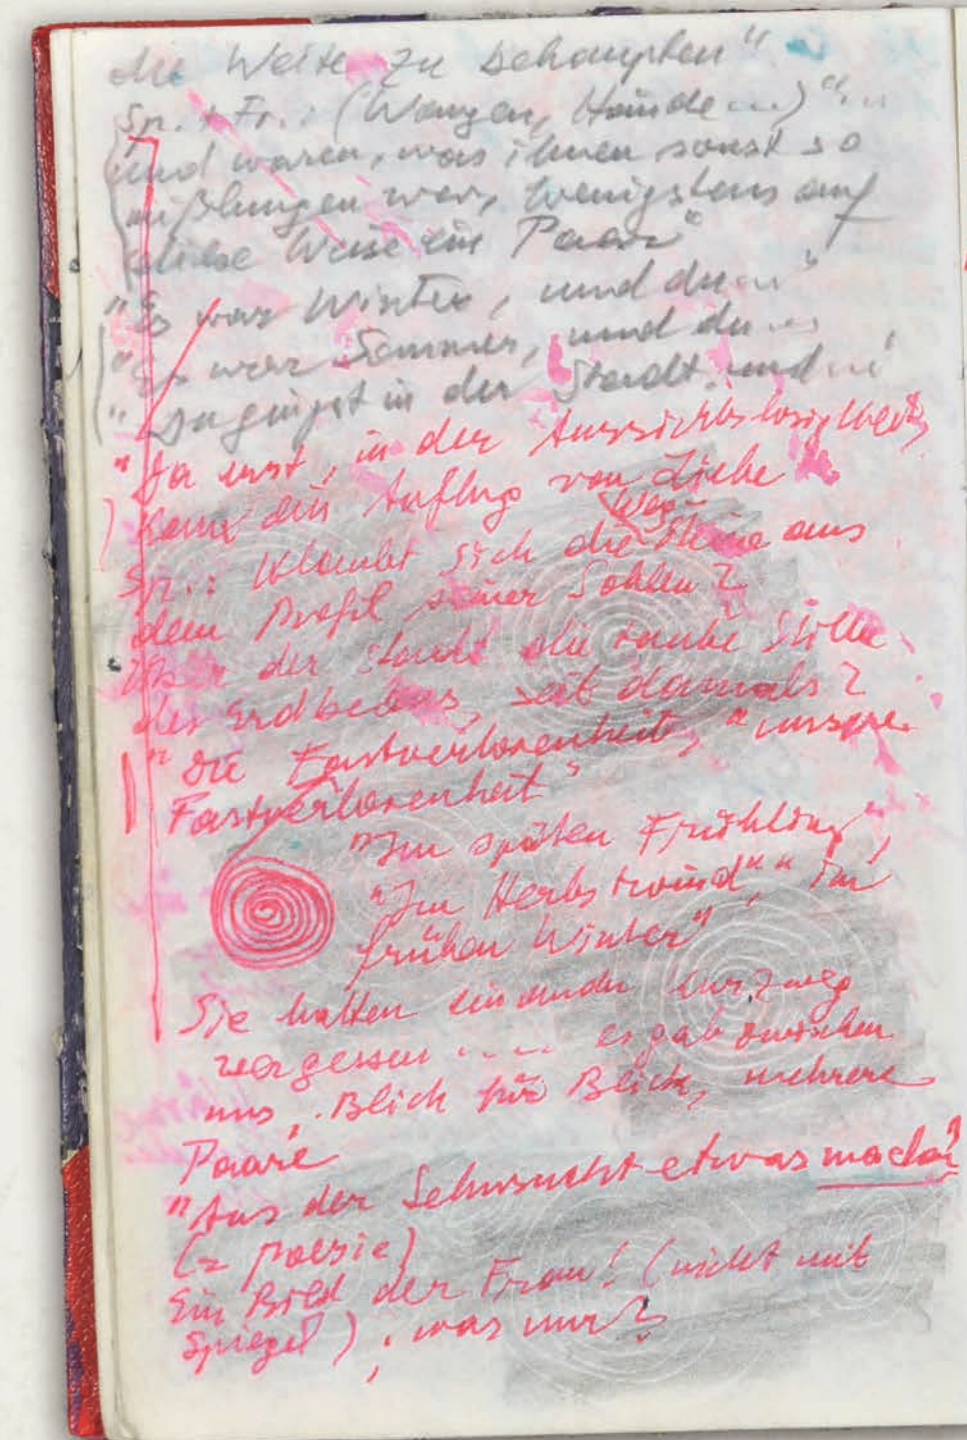 die Weite zu behaupten"
Sp. : Fr.: (Wangen, Hände ...)"...
und waren, was ihnen sonst so
mißlungen war, wenigstens auf
diese Weise ein Paar"
"Es war Winter, und du ..."
"Es war Sommer, und du ..."
"Du gingst in der Stadt, und ..."
"Da erst, in der Aussichtslosigkeit,
kam ein Anflug von Liebe
weg
Sp.: Klaubt sich die Steine aus
dem Profil seiner Sohlen?
Über der Stadt die rauhe Stille
des Erdbebens, seit damals?
"Die Fastverlorenheit", "unsere
Fastverlorenheit"
"Im späten Frühling",
"Im Herbstwind", "Im
frühen Winter"
Sie hatten einander kurzweg
vergessen ..... es gab zwischen
uns, Blick für Blick, mehrere
Paare
"Aus der Sehnsucht etwas machen"
(= Poesie)
Ein Bild der Frau! (nicht mit
Spiegel); was nur?